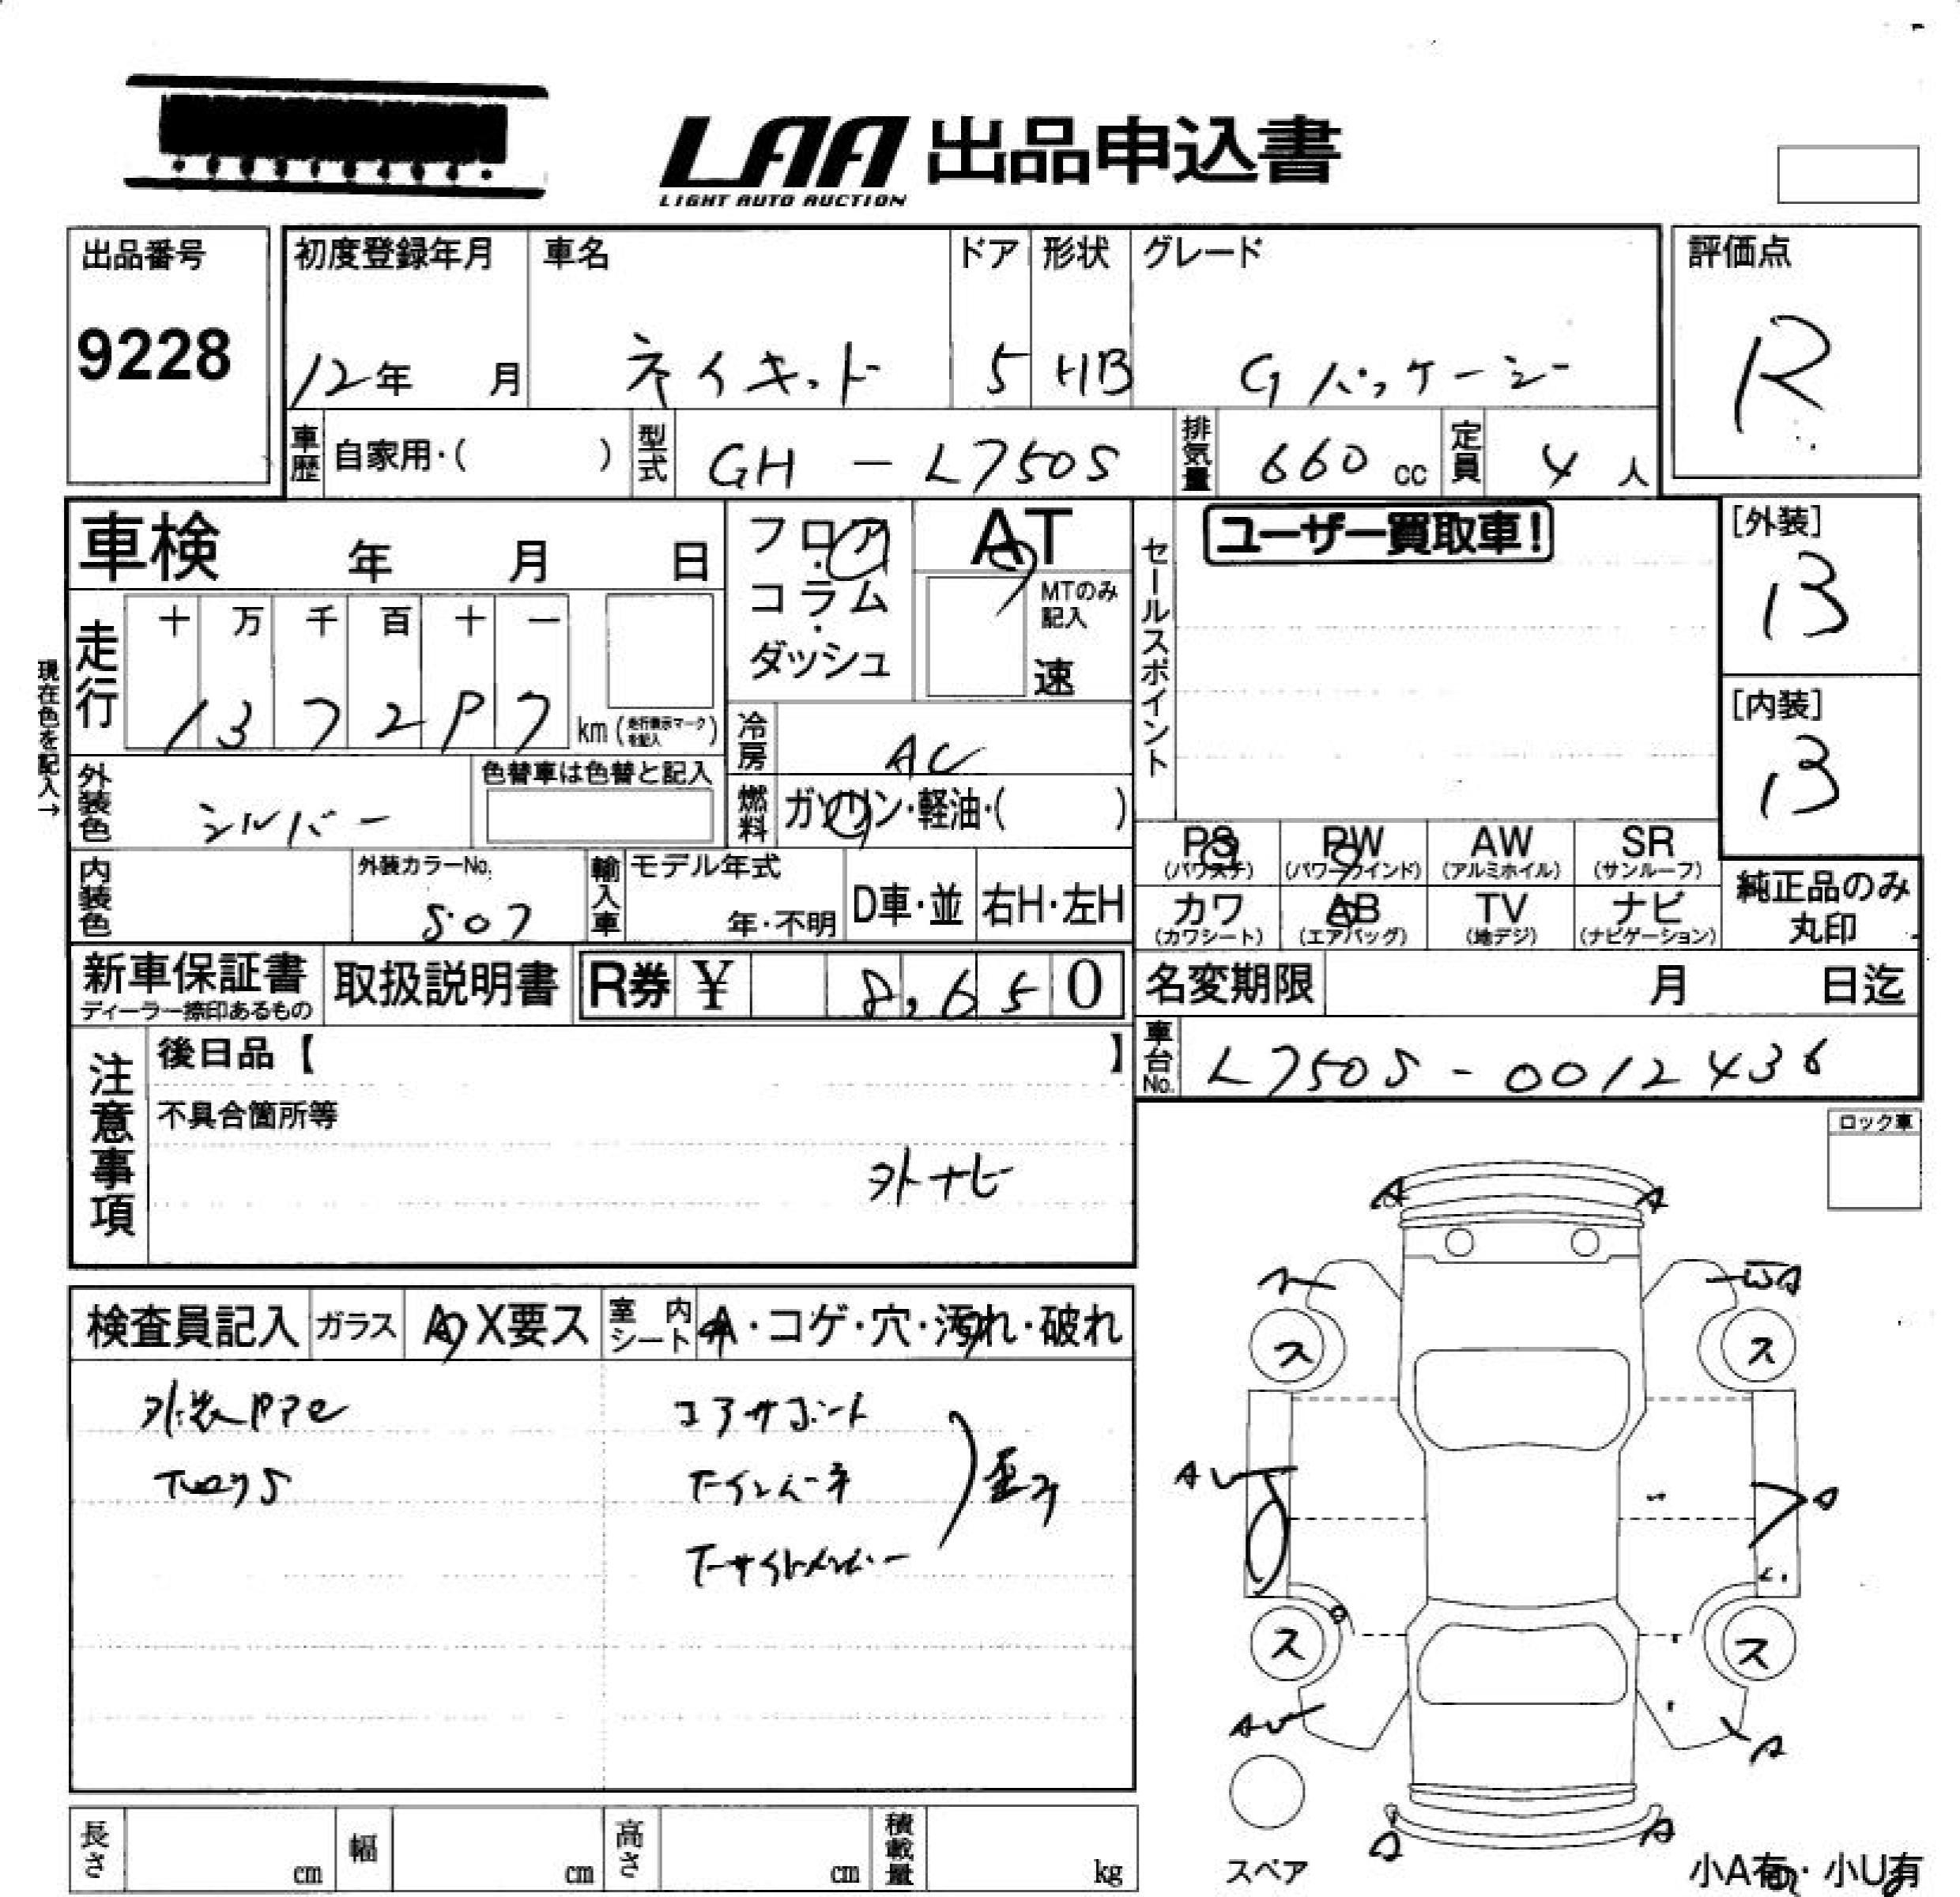 LAA 出品申込書
LIGHT AUTO AUCTION
出品番号
9228
初度登録年月
12年 月
車名
ネイキッド
ドア
5
形状
HB
グレード
Gパッケージ
評価点
R
車歴 自家用・( )
型式 GH - L750S
排気量 660 cc
定員 4 人
車検 年 月 日
フロア・コラム・ダッシュ
AT
MTのみ記入
速
セールスポイント
ユーザー買取車!
[外装]
B
[内装]
B
現在色を記入→
走行
十 万 千 百 十 一
km (走行表示マークを記入)
冷房 AC
外装色 シルバー
色替車は色替と記入
燃料 ガソリン・軽油・( )
PS (パワステ)
PW (パワーウインド)
AW (アルミホイル)
SR (サンルーフ)
カワ (カワシート)
AB (エアバッグ)
TV (地デジ)
ナビ (ナビゲーション)
純正品のみ丸印
内装色
外装カラーNo.
S07
輸入車
モデル年式
年・不明
D車・並
右H・左H
新車保証書
ディーラー捺印あるもの
取扱説明書
R券 ¥ 8,650
名変期限 月 日迄
車台No. L750S-0012436
注意事項
後日品【 】
不具合箇所等
外ナビ
ロック車
検査員記入
ガラス
A・X要ス
室内シート
A・コゲ・穴・汚れ・破れ
コアサポート
歪み
A A
A
ス ス
AU A
ス ス
AU A
A A
スペア
小A有・小U有
長さ cm
幅 cm
高さ cm
積載量 kg